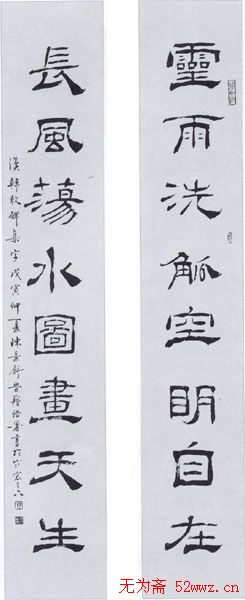 靈雨洗觚空明自在
長風蕩水圖畫天生
漢韓敕碑集字戊寅仲夏陳景舒
无为斋 52wwz.cn